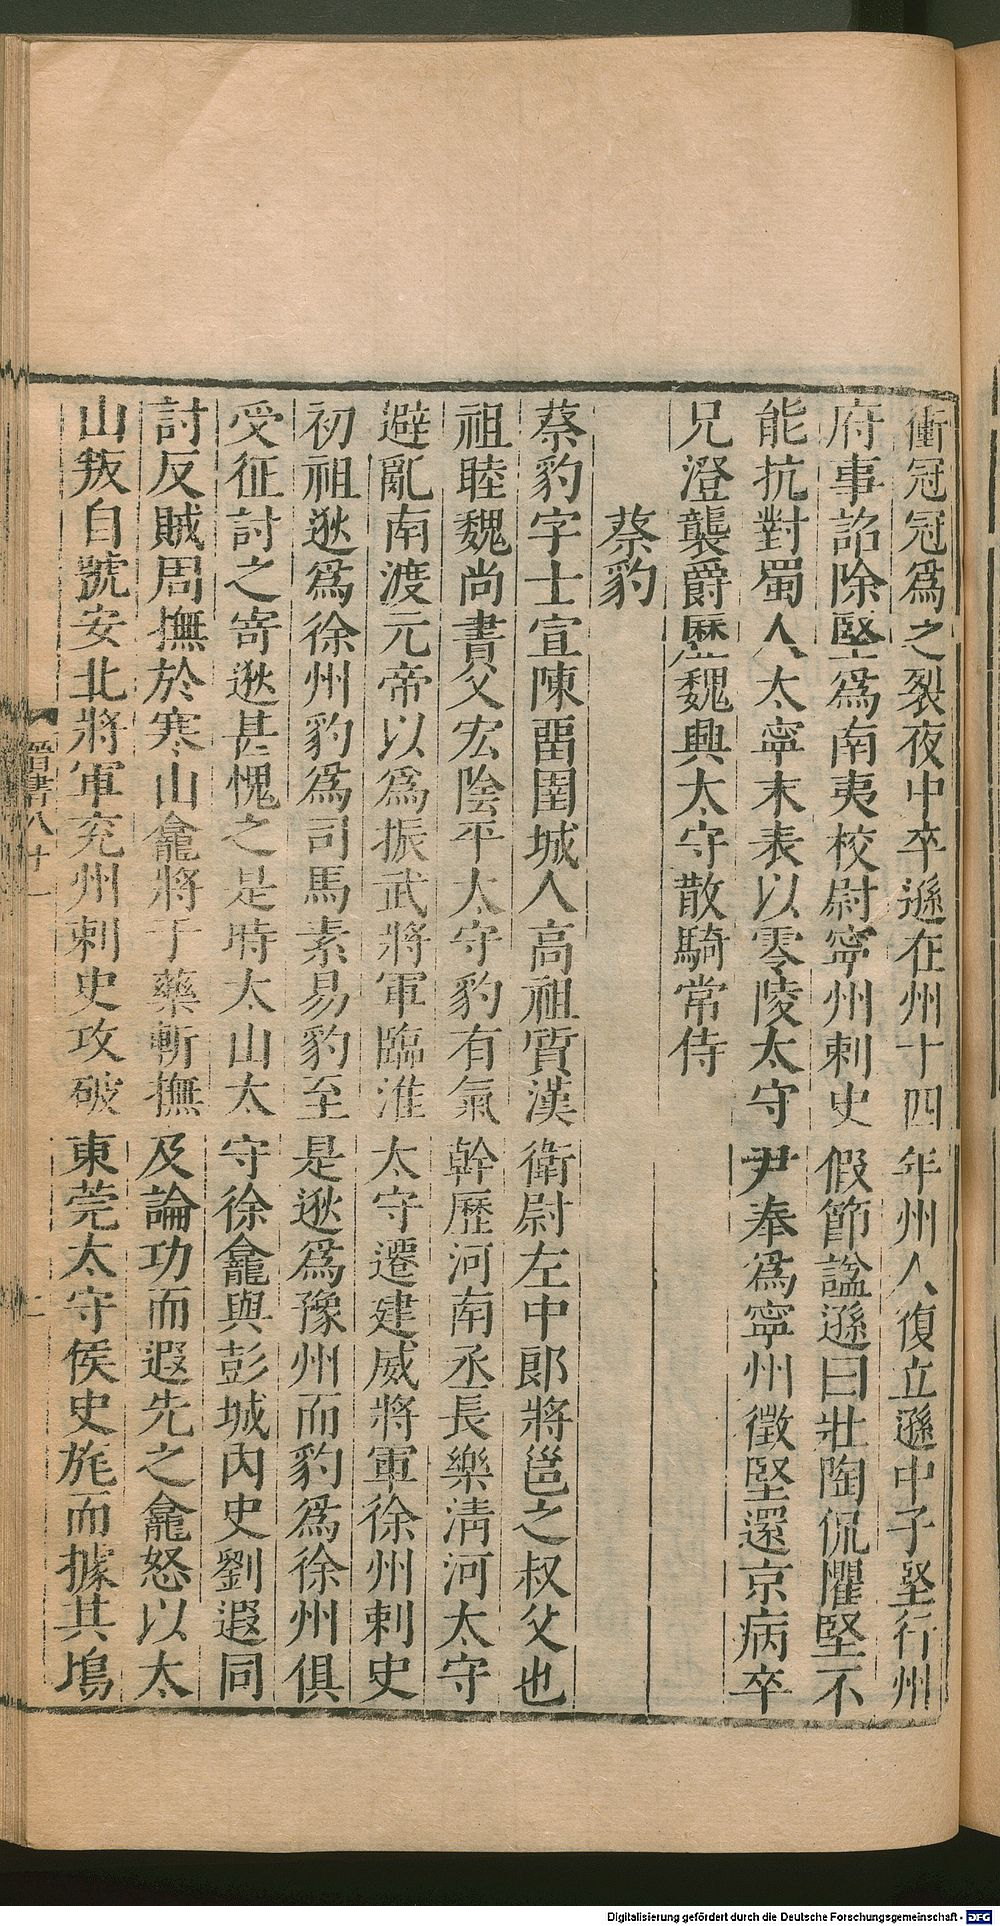 衝冠冠爲之裂夜中卒遜在州十四年州人復立遜中子堅行州
府事詔除堅爲南夷校尉寧州刺史假節諡遜曰壯陶侃懼堅不
能抗對蜀人太寧末表以零陵太守尹奉爲寧州徵堅還京病卒
兄澄襲爵歷魏興太守散騎常侍
蔡豹
蔡豹字士宣陳畱圉城人高祖質漢衛尉左中郎將邕之叔父也
祖睦魏尚書父宏陰平太守豹有氣幹歷河南丞長樂淸河太守
避亂南渡元帝以爲振武將軍臨淮太守遷建威將軍徐州刺史
初祖逖爲徐州豹爲司馬素易豹至是逖爲豫州而豹爲徐州俱
受征討之寄逖甚愧之是時太山太守徐龕與彭城内史劉遐同
討反賊周撫於寒山龕將于藥斬撫及論功而遐先之龕怒以太
山叛自號安北將軍兗州刺史攻破東莞太守侯史旄而據其塢
晉書八十一
Digitalisierung gefördert durch die Deutsche Forschungsgemeinschaft - DFG